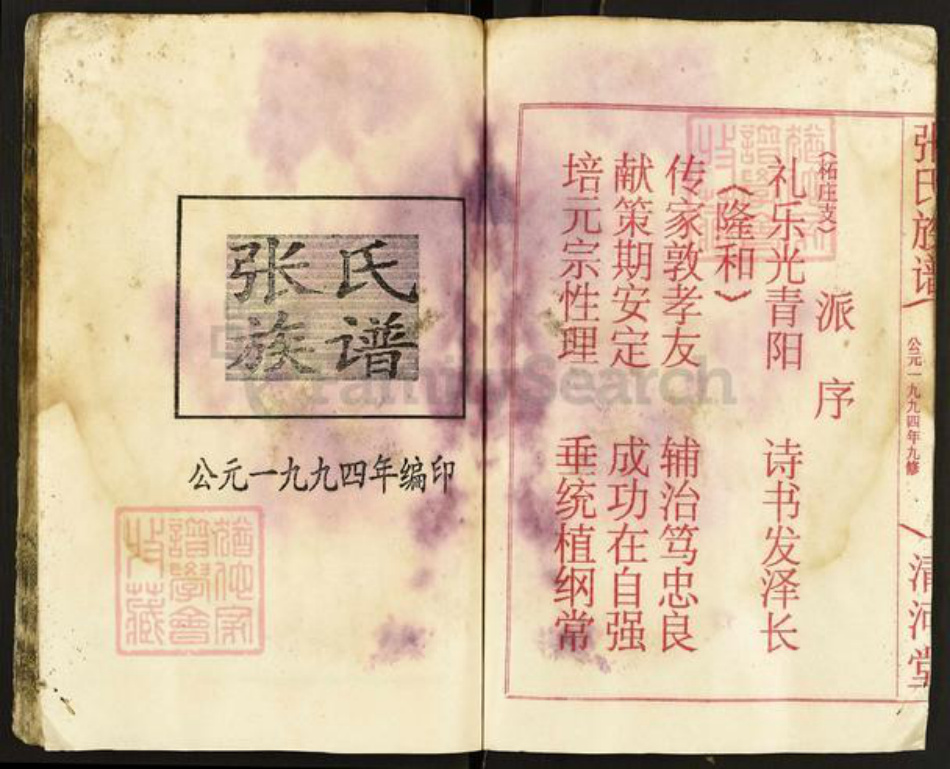 张氏
族谱
公元一九九四年编印
张氏族谱
公元一九九四年九修
清河堂
派序
(柘庄支)
礼乐光青阳 诗书发泽长
《隆和》
传家敦孝友 辅治笃忠良
献策期安定 成功在自强
培元宗性理 垂统植纲常
FamilySearch